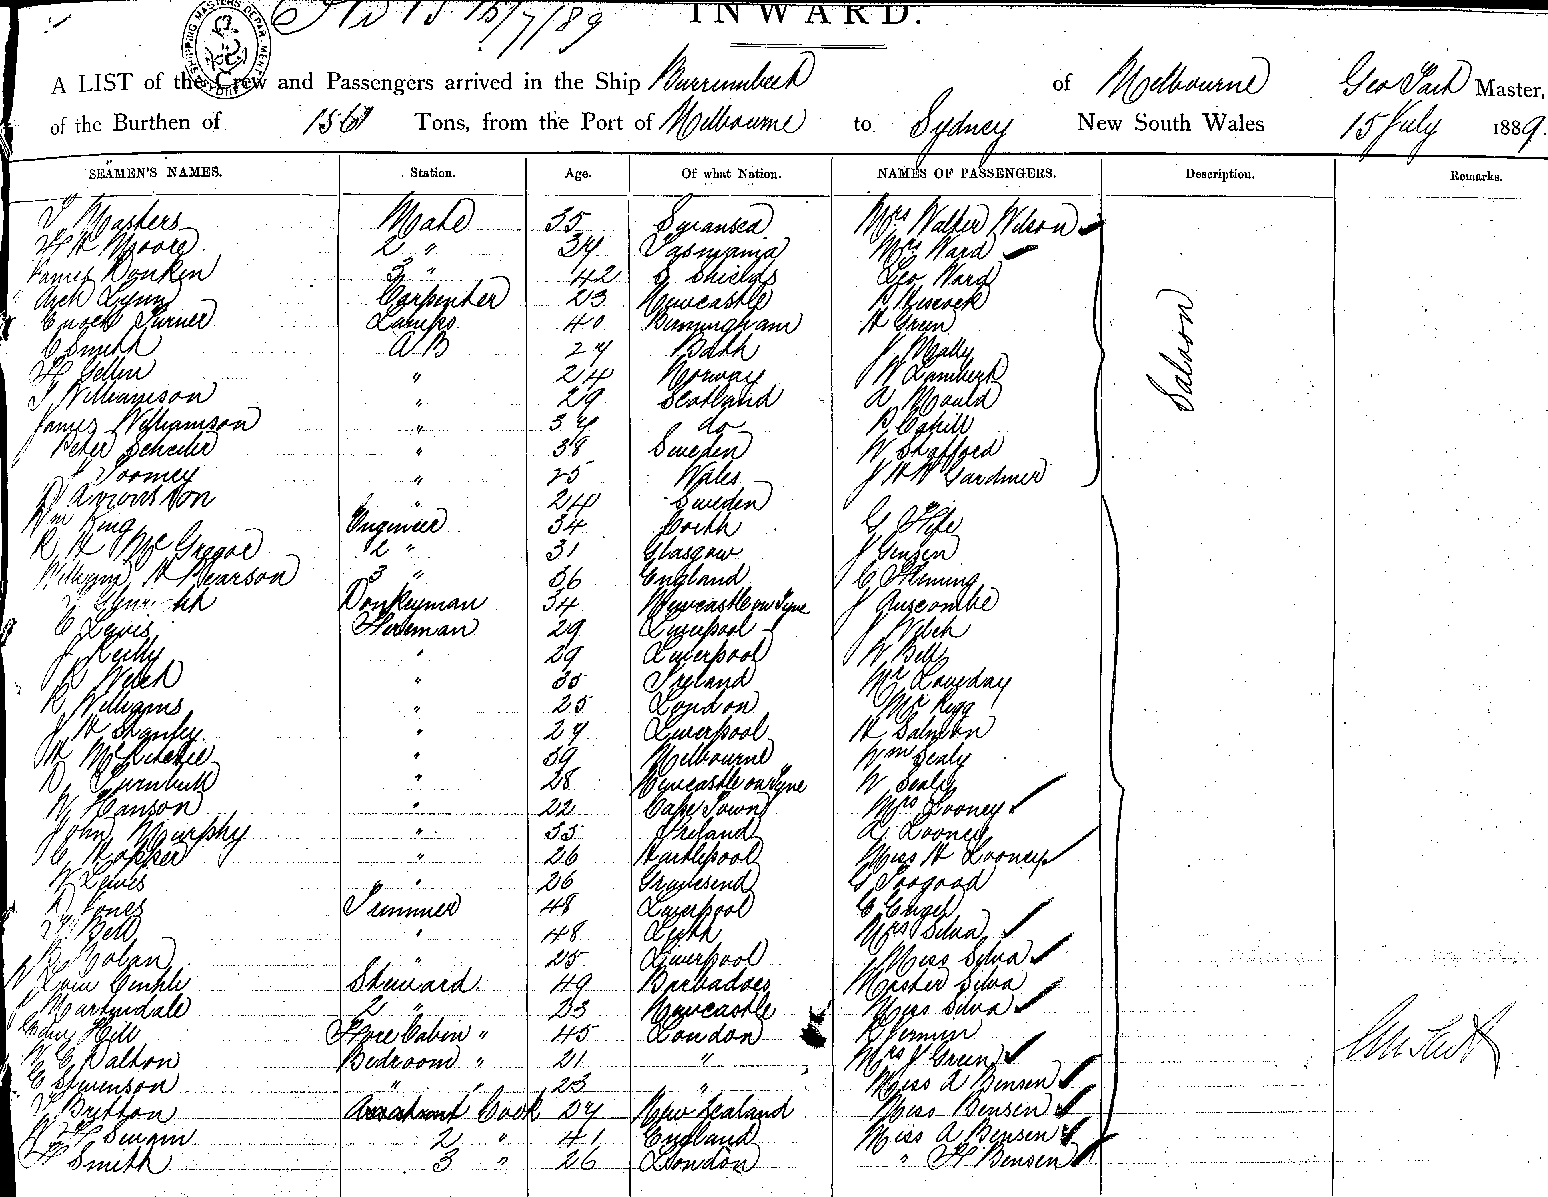 No 15 15/7/89
INWARD.
SHIPPING MASTERS DEPARTMENT
A LIST of the Crew and Passengers arrived in the Ship Burrumbeet of Melbourne Geo Master,
of the Burthen of Tons, from the Port of Melbourne to Sydney New South Wales 15 July 1889.
SEAMEN'S NAMES. Station. Age. Of what Nation. NAMES OF PASSENGERS. Description. Remarks.
T Masters Mate 35 Swansea Mrs Walter Wilson
H W Moore 2 " 34 Tasmania Mrs Ward
James Donkin 3 " 42 S Shields Geo Ward
Arch Lynn Carpenter 23 Newcastle Hiscock
Enoch Turner Lamps 40 Birmingham H Green
C Smith A B 27 Bath J Mally
" 24 Norway W Lambert
T Williamson " 29 Scotland A Mould
James Williamson " 37 do Cahill
Peter " 38 Sweden W Stafford
Toomey " 25 Wales J W W Gardiner
" 24 Sweden
Wm King Engineer 34 G
R H McGregor 2 " 31 Glasgow J Jensen
William H Pearson 3 " 36 England C Fleming
Donkeyman 34 Newcastle on Tyne J Luscombe
C Lewis Fireman 29 Liverpool J Welch
J Reilly " 29 Liverpool W Bell
R Welch " 35 Ireland Mr Loveday
R Williams " 25 London Mr Rigg
J H Stanley " 27 Liverpool H Salmon
McRitchie " 39 Melbourne Wm Sealy
Turnbull " 28 Newcastle on Tyne W Sealy
W Hanson " 22 Cape Town Mrs Looney
John Murphy " 35 Ireland L Looney
C Hopper " 26 Hartlepool Miss H Looney
W Lewis " 26 Gravesend G Toogood
Jones Trimmer 48 Liverpool C Engel
Bell " 48 Leith Mrs Silva
Nolan " 25 Liverpool Miss Silva
Steward 49 Barbadoes Master Silva
Martindale 2 " 33 Newcastle Miss Silva
Hill Fore Cabin " 45 London
Dalton Bedroom " 21 " Mrs J Green
C Stevenson " " 23 " Miss A Bensen
T Britton Cook 27 New Zealand Miss Bensen
2 " 41 England Miss A Bensen
H Smith 3 " 26 London " H Bensen
Saloon